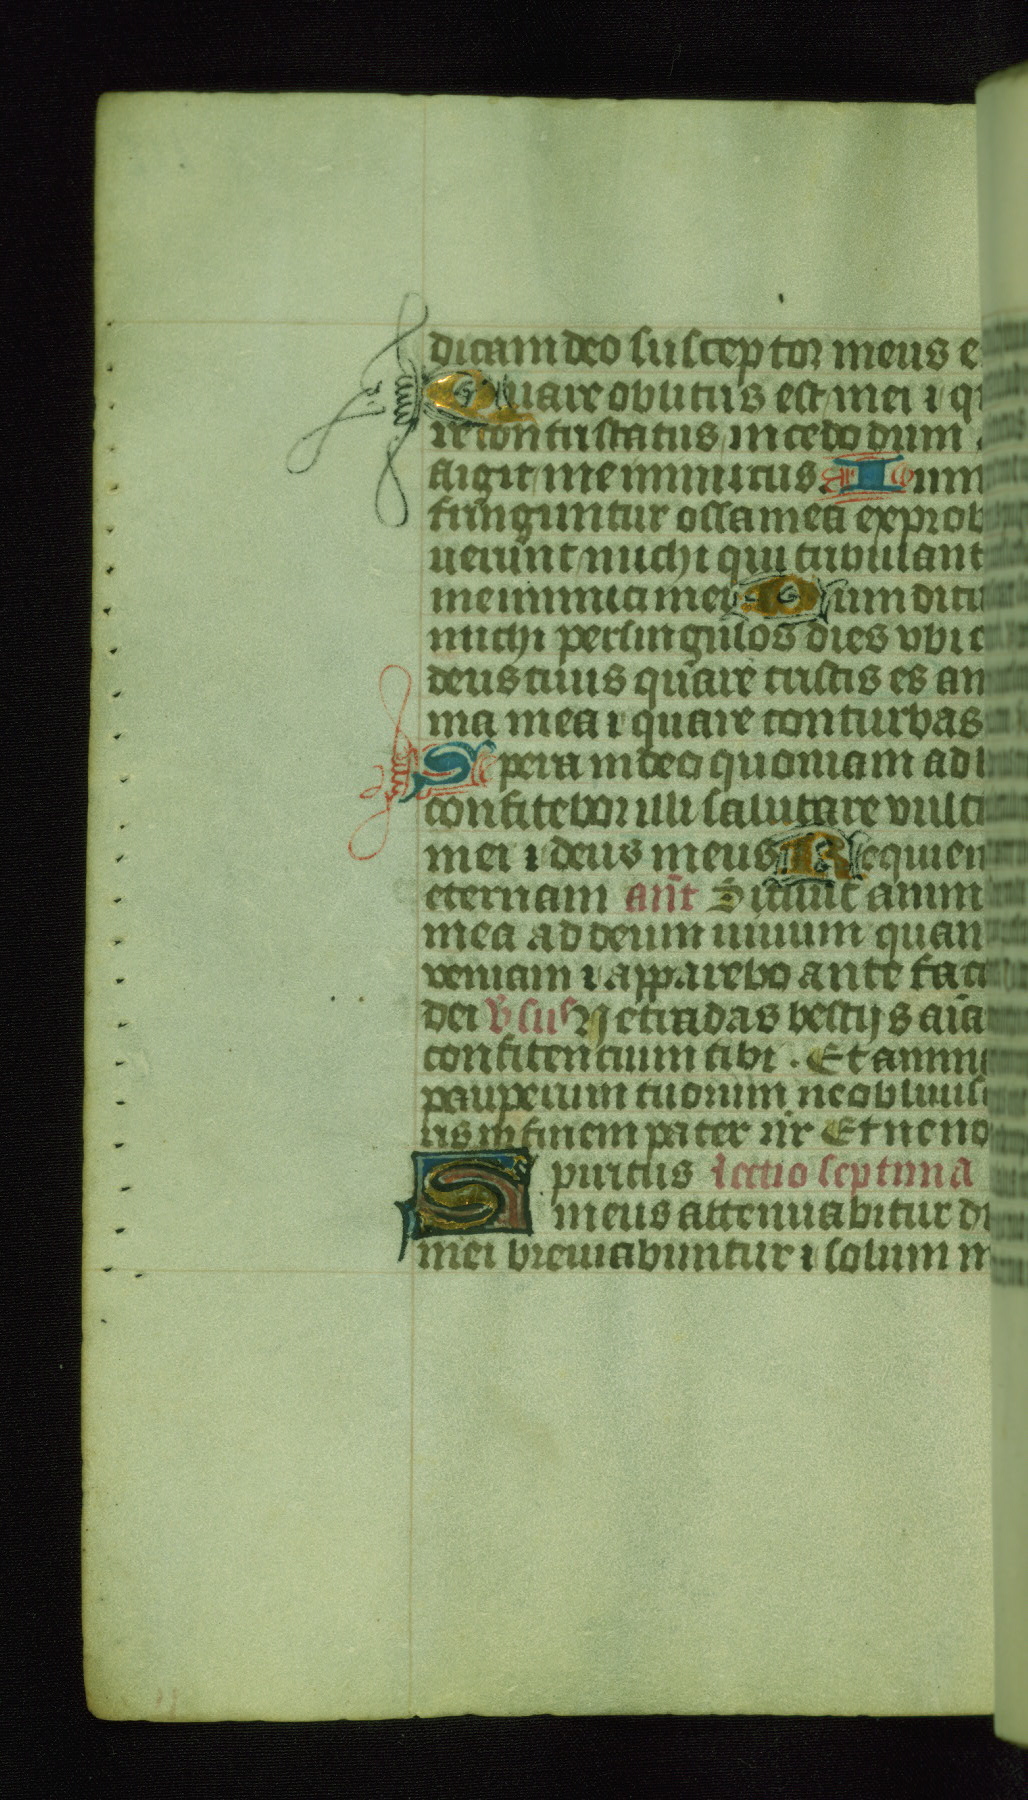 dicam deo susceptor meus e
Quare oblitus est mei ⁊ qu
re contristatus incedo dum
fligit me inimicus Dum
fringuntur ossa mea exprob
uerunt michi qui tribulant
me inimici mei Dum dicu
michi per singulos dies vbi e
deus tuus quare tristis es an
ma mea ⁊ quare conturbas
Spera in deo quoniam adh
confitebor illi salutare vult
mei ⁊ deus meus Requiem
eternam añt Sitiuit anim
mea ad deum uiuum quan
veniam ⁊ apparebo ante faci
dei v̄sus Ne tradas bestijs aīa
confitentium tibi . Et animas
pauperum tuorum ne obliuisc
ris in finem pater nr̄ Et ne no
Spiritus lectio septima
meus attenuabitur di
mei breuiabuntur ⁊ solum m